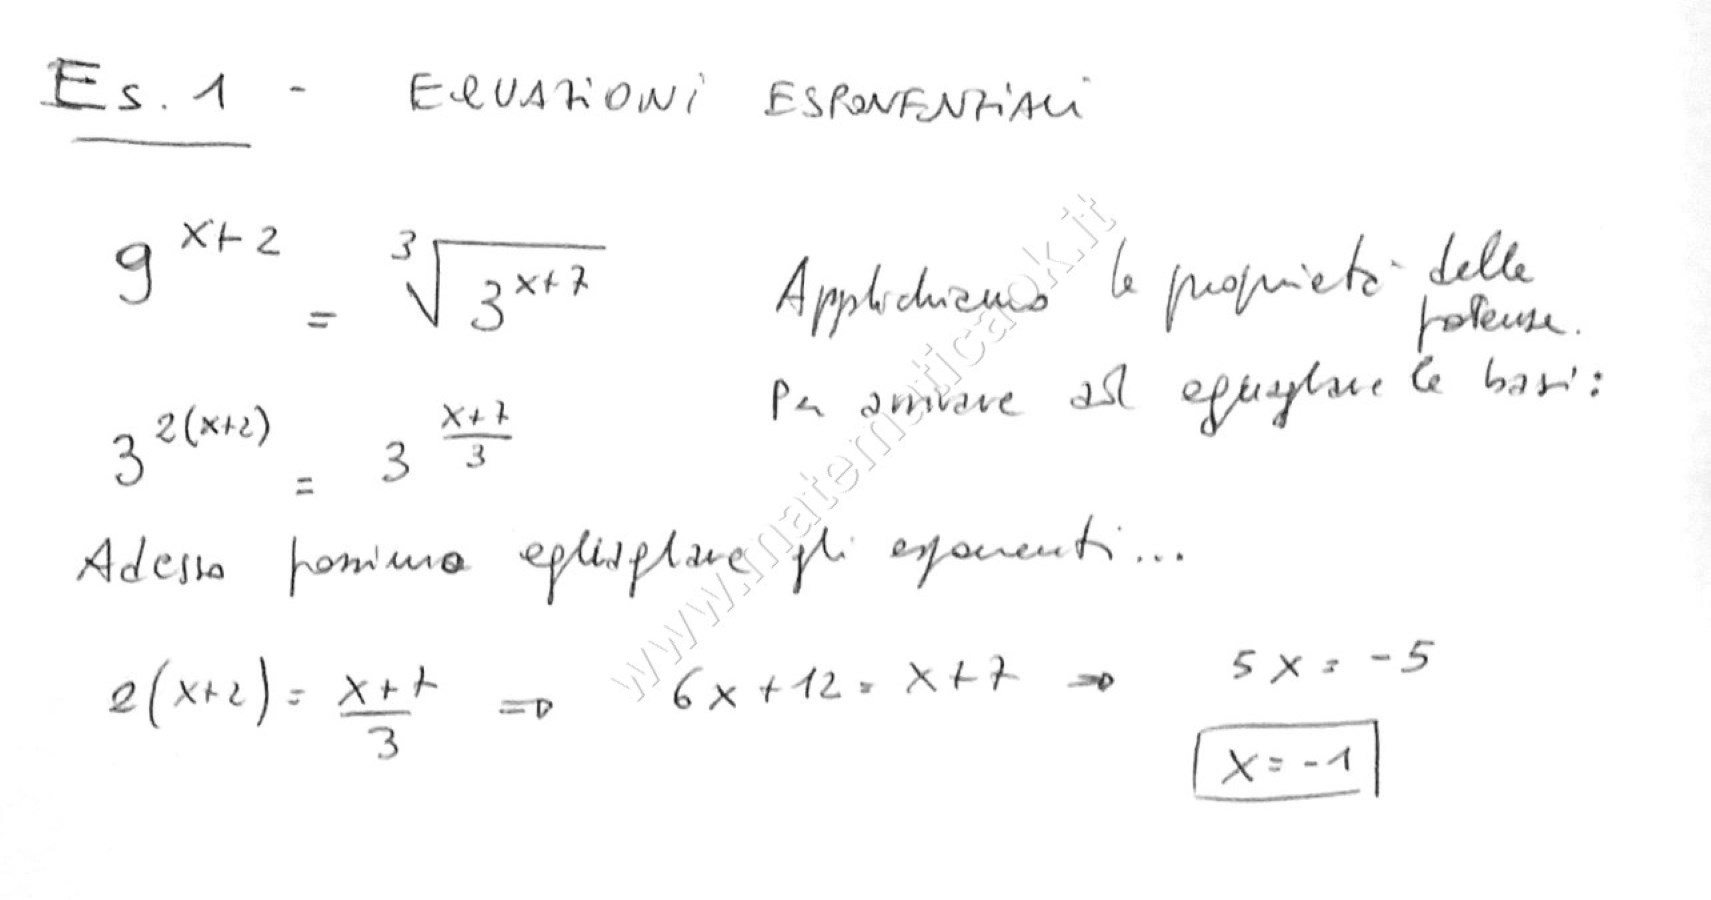 Es. 1 - EQUAZIONI ESPONENZIALI
9^(x+2) = ∛(3^(x+7))
Applichiamo le proprietà delle potenze.
Per arrivare ad eguagliare le basi:
3^(2(x+2)) = 3^((x+7)/3)
Adesso possiamo eguagliare gli esponenti...
2(x+2) = (x+7)/3 ⇒ 6x+12 = x+7 ⇒ 5x = -5
x = -1
www.matematicaok.it